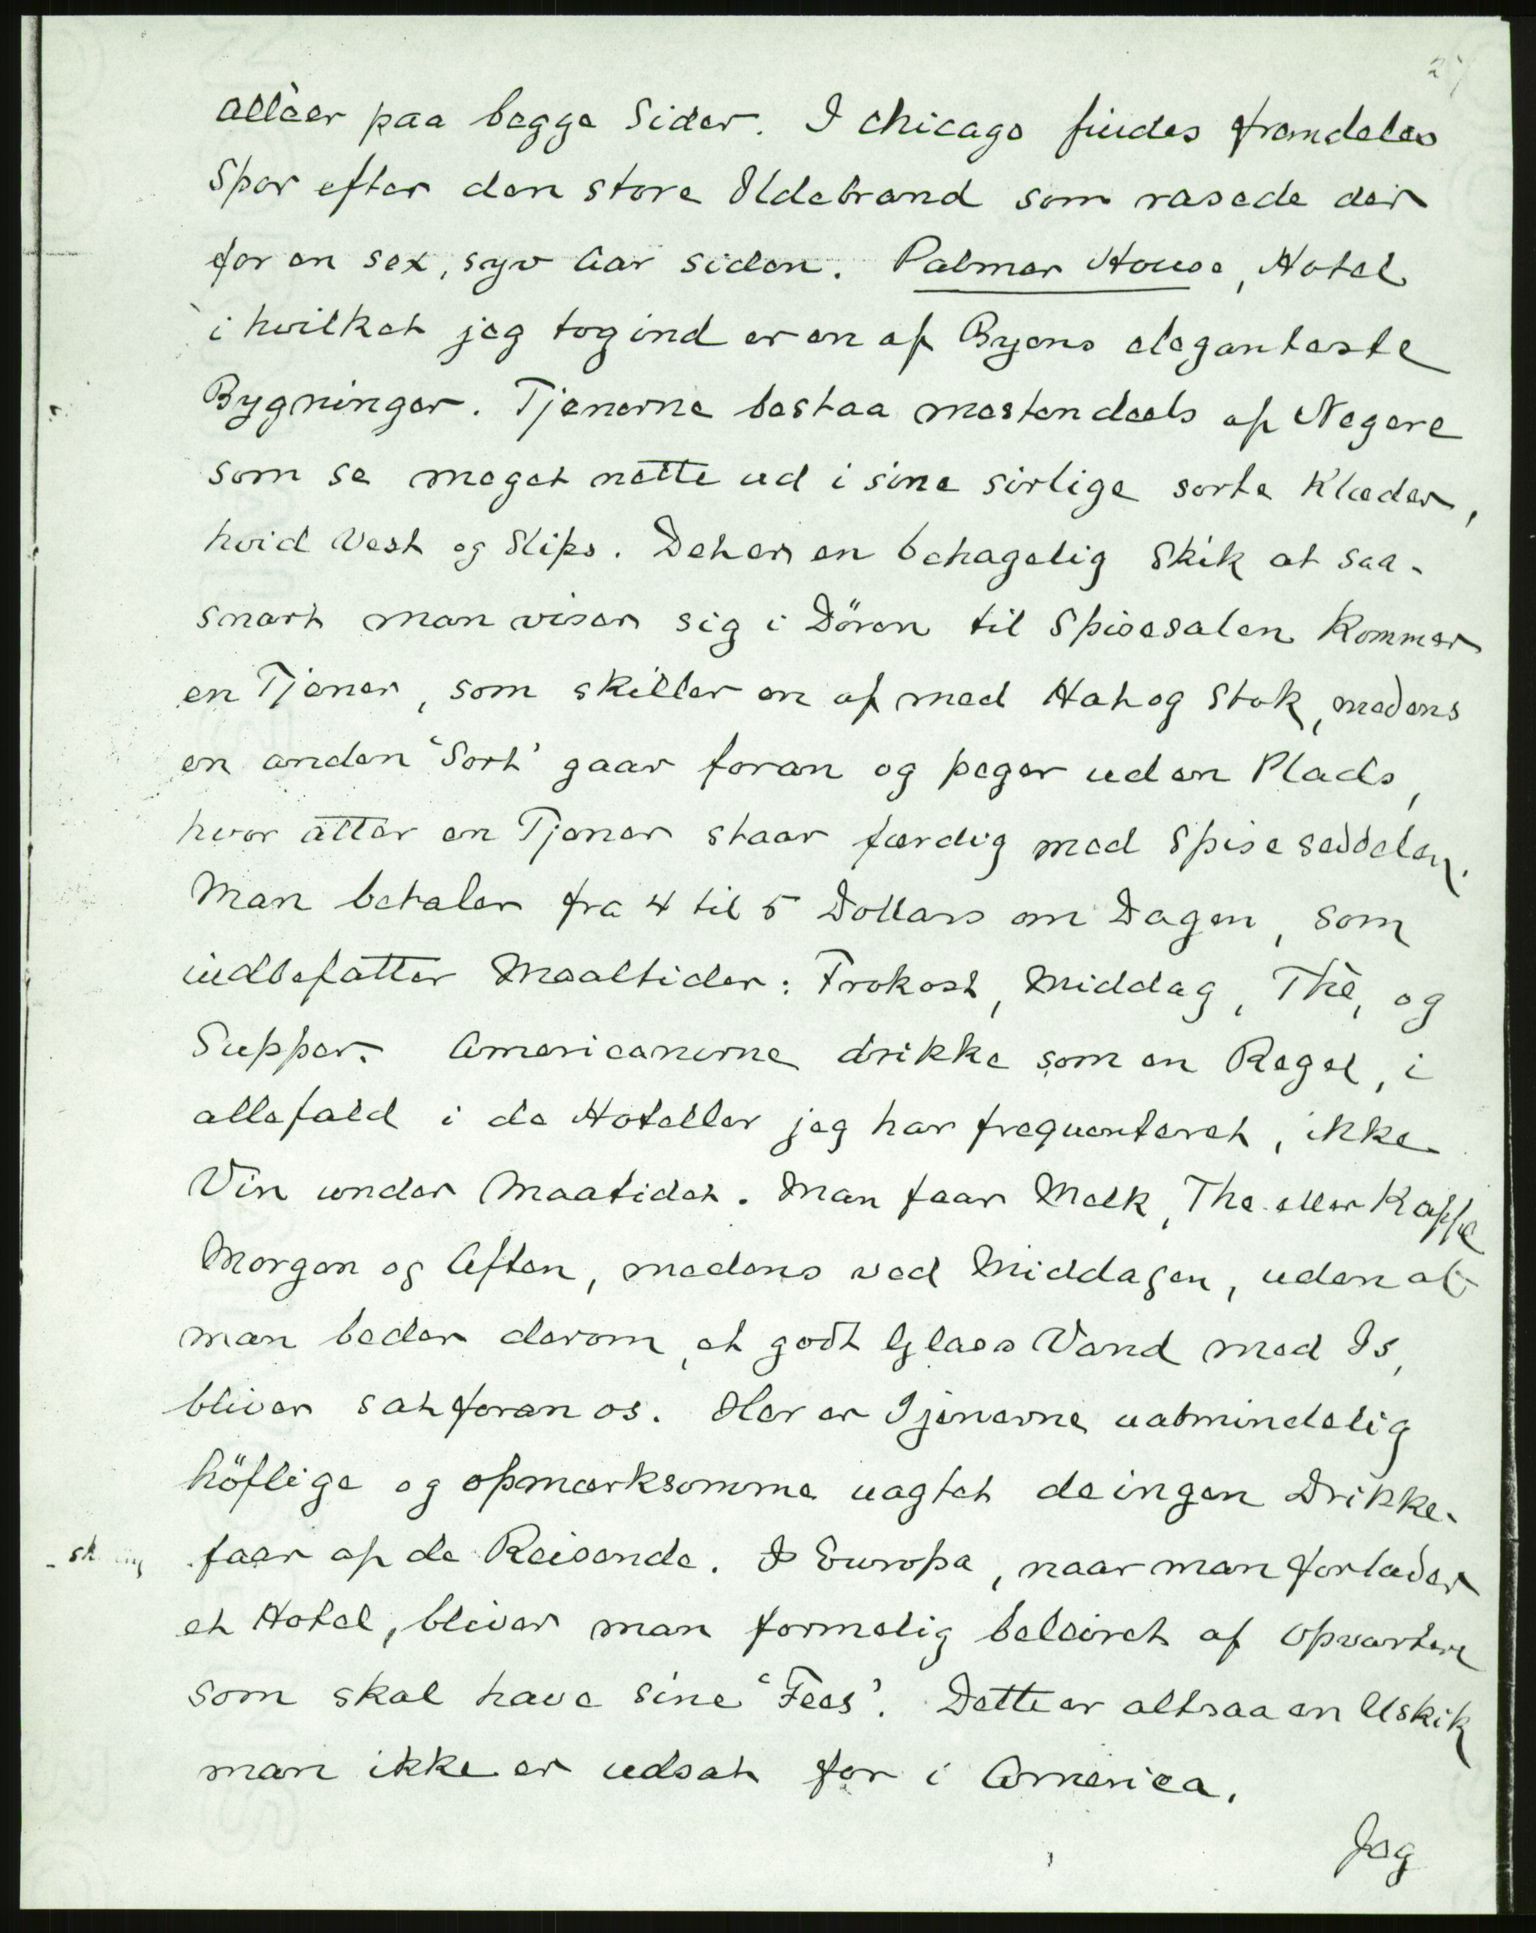 27
allèer paa begge Sider. I Chicago findes fremdeles
Spor efter den store Ildebrand som rasede der
for en sex, syv Aar siden. Palmer House, Hotel
i hvilket jeg tog ind er en af Byens eleganteste
Bygninger. Tjenerne bestaa mestendeels af Negere
som se meget nette ud i sine sirlige sorte Klæder,
hvid Vest og Slips. Det er en behagelig Skik at saa-
snart man viser sig i Dören til Spisesalen kommer
en Tjener, som skiller en af med Hat og Stok, medens
en anden 'Sort' gaar foran og peger ud en Plads,
hvor atter en Tjener staar færdig med Spiseseddelen.
Man betaler fra 4 til 5 Dollars om Dagen, som
indbefatter Maaltider: Frokost, Middag, Thè, og
Supper. Americanerne drikke som en Regel, i
allefald i de Hoteller jeg har frequenteret, ikke
Vin under Maatidet. Man faar Melk, The eller Kaffe
Morgen og Aften, medens ved Middagen, uden at
man beder derom, et godt Glass Vand med Is,
bliver sat foran os. Her er Tjenerne ualmindelig
höflige og opmærksomme uagtet de ingen Drikke-
faar af de Reisende. I Europa, naar man forlader
et Hotel, bliver man formelig beleiret af Opvartere
som skal have sine 'Fees'. Dette er altsaa en Uskik
man ikke er udsat for i America.
Jeg